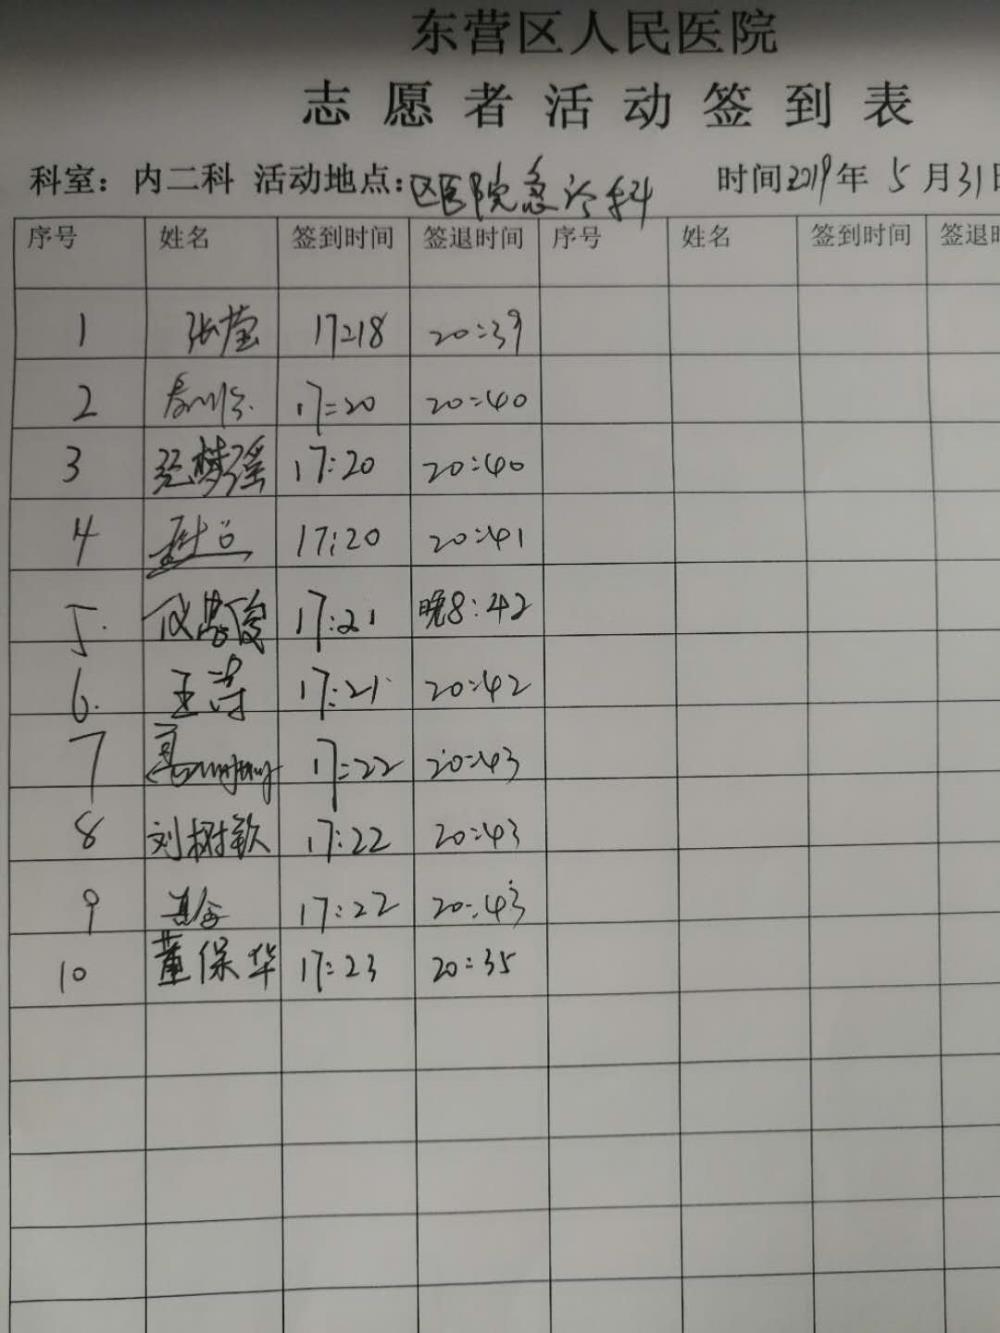 东营区人民医院
志愿者活动签到表
科室：内二科 活动地点：区医院急诊科 时间2019年5月31日
序号 姓名 签到时间 签退时间 序号 姓名 签到时间 签退时
1 张莹 17:18 20:39
2 17:20 20:40
3 梦瑶 17:20 20:40
4 17:20 20:41
5. 17:21 晚8:42
6. 王涛 17:21 20:42
7 17:22 20:43
8 刘树钦 17:22 20:43
9 17:22 20:43
10 董保华 17:23 20:35